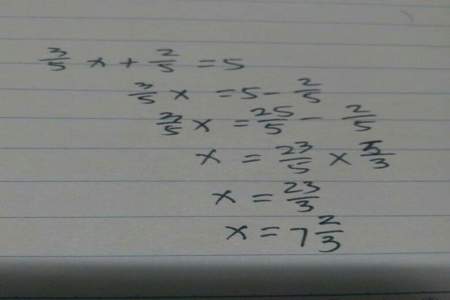 3/5 x + 2/5 = 5
3/5 x = 5 - 2/5
3/5 x = 25/5 - 2/5
x = 23/5 × 5/3
x = 23/3
x = 7 2/3